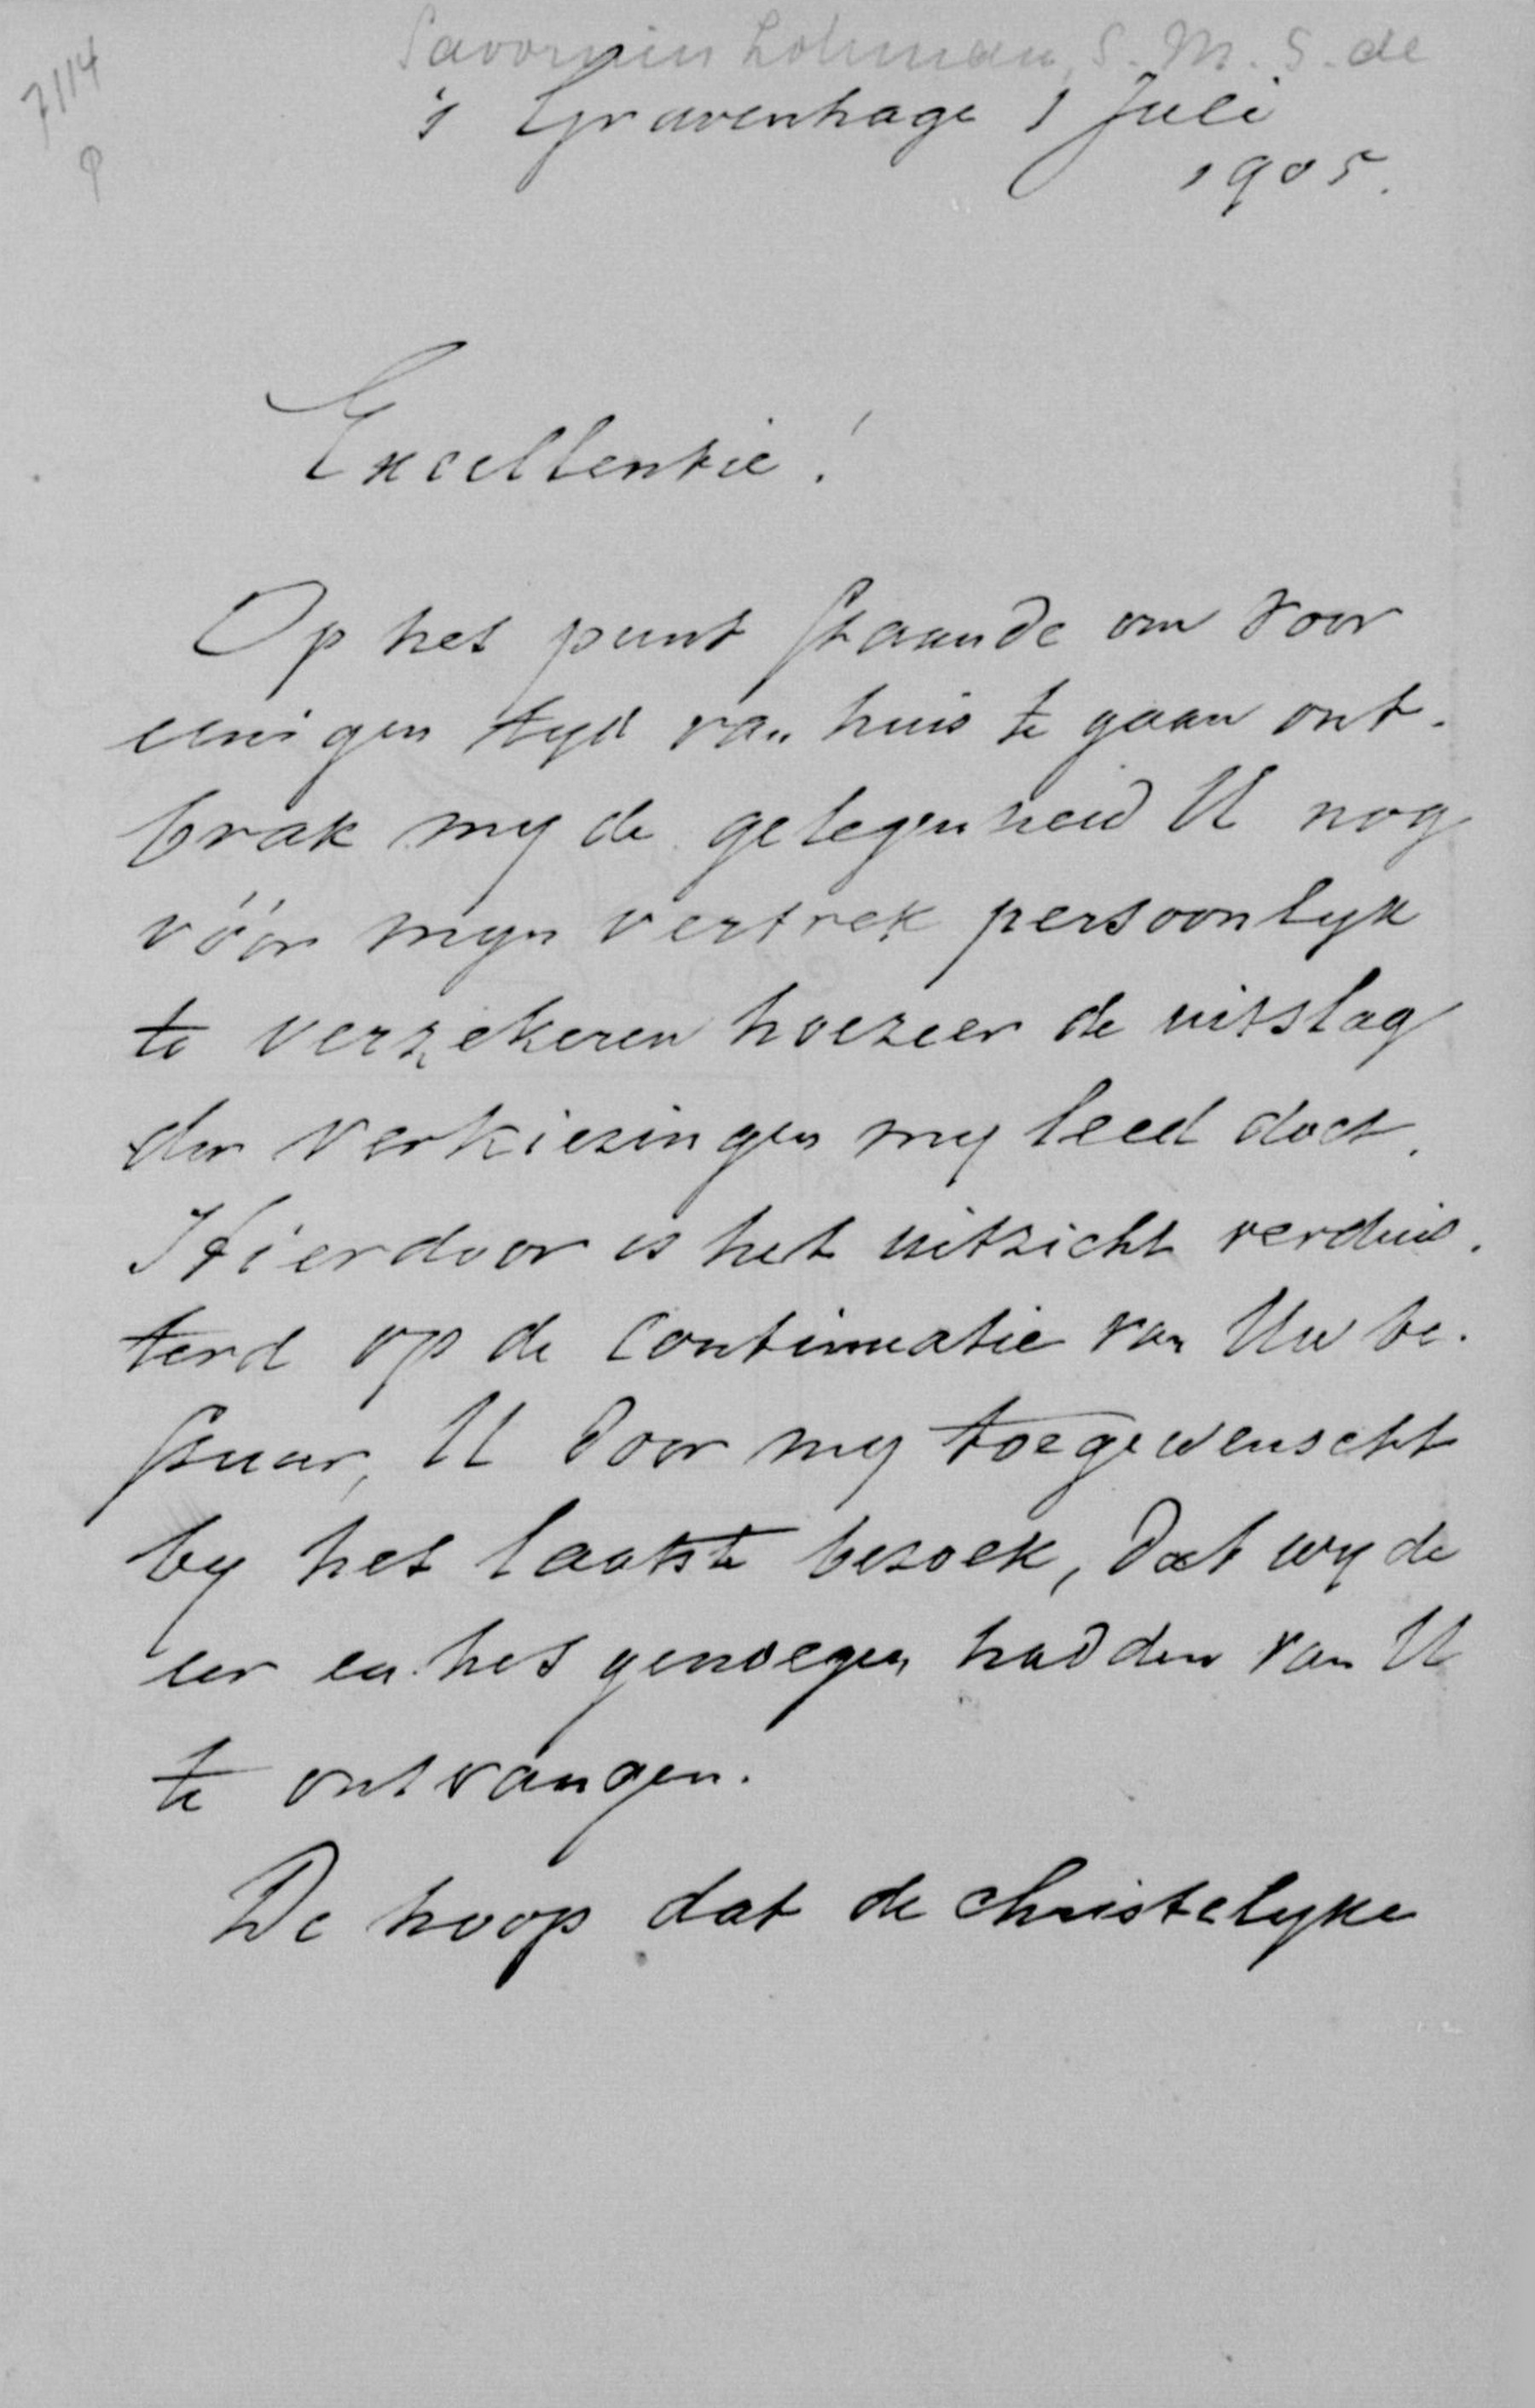 7114
Savornin Lohman, S. M. S. de
's Gravenhage 1 Juli
1905.
Excellentie!
Op het punt staande om voor
eenigen tyd van huis te gaan ont-
brak my de gelegenheid U nog
vóór myn vertrek persoonlyk
te verzekeren hoezeer de uitslag
der verkiezingen my leed doet.
Hierdoor is het uitzicht verduis-
terd op de continuatie van Uw be-
stuur, U door my toegewenscht
by het laatste bezoek, dat wy de
eer en het genoegen hadden van U
te ontvangen.
De hoop dat de christelyke